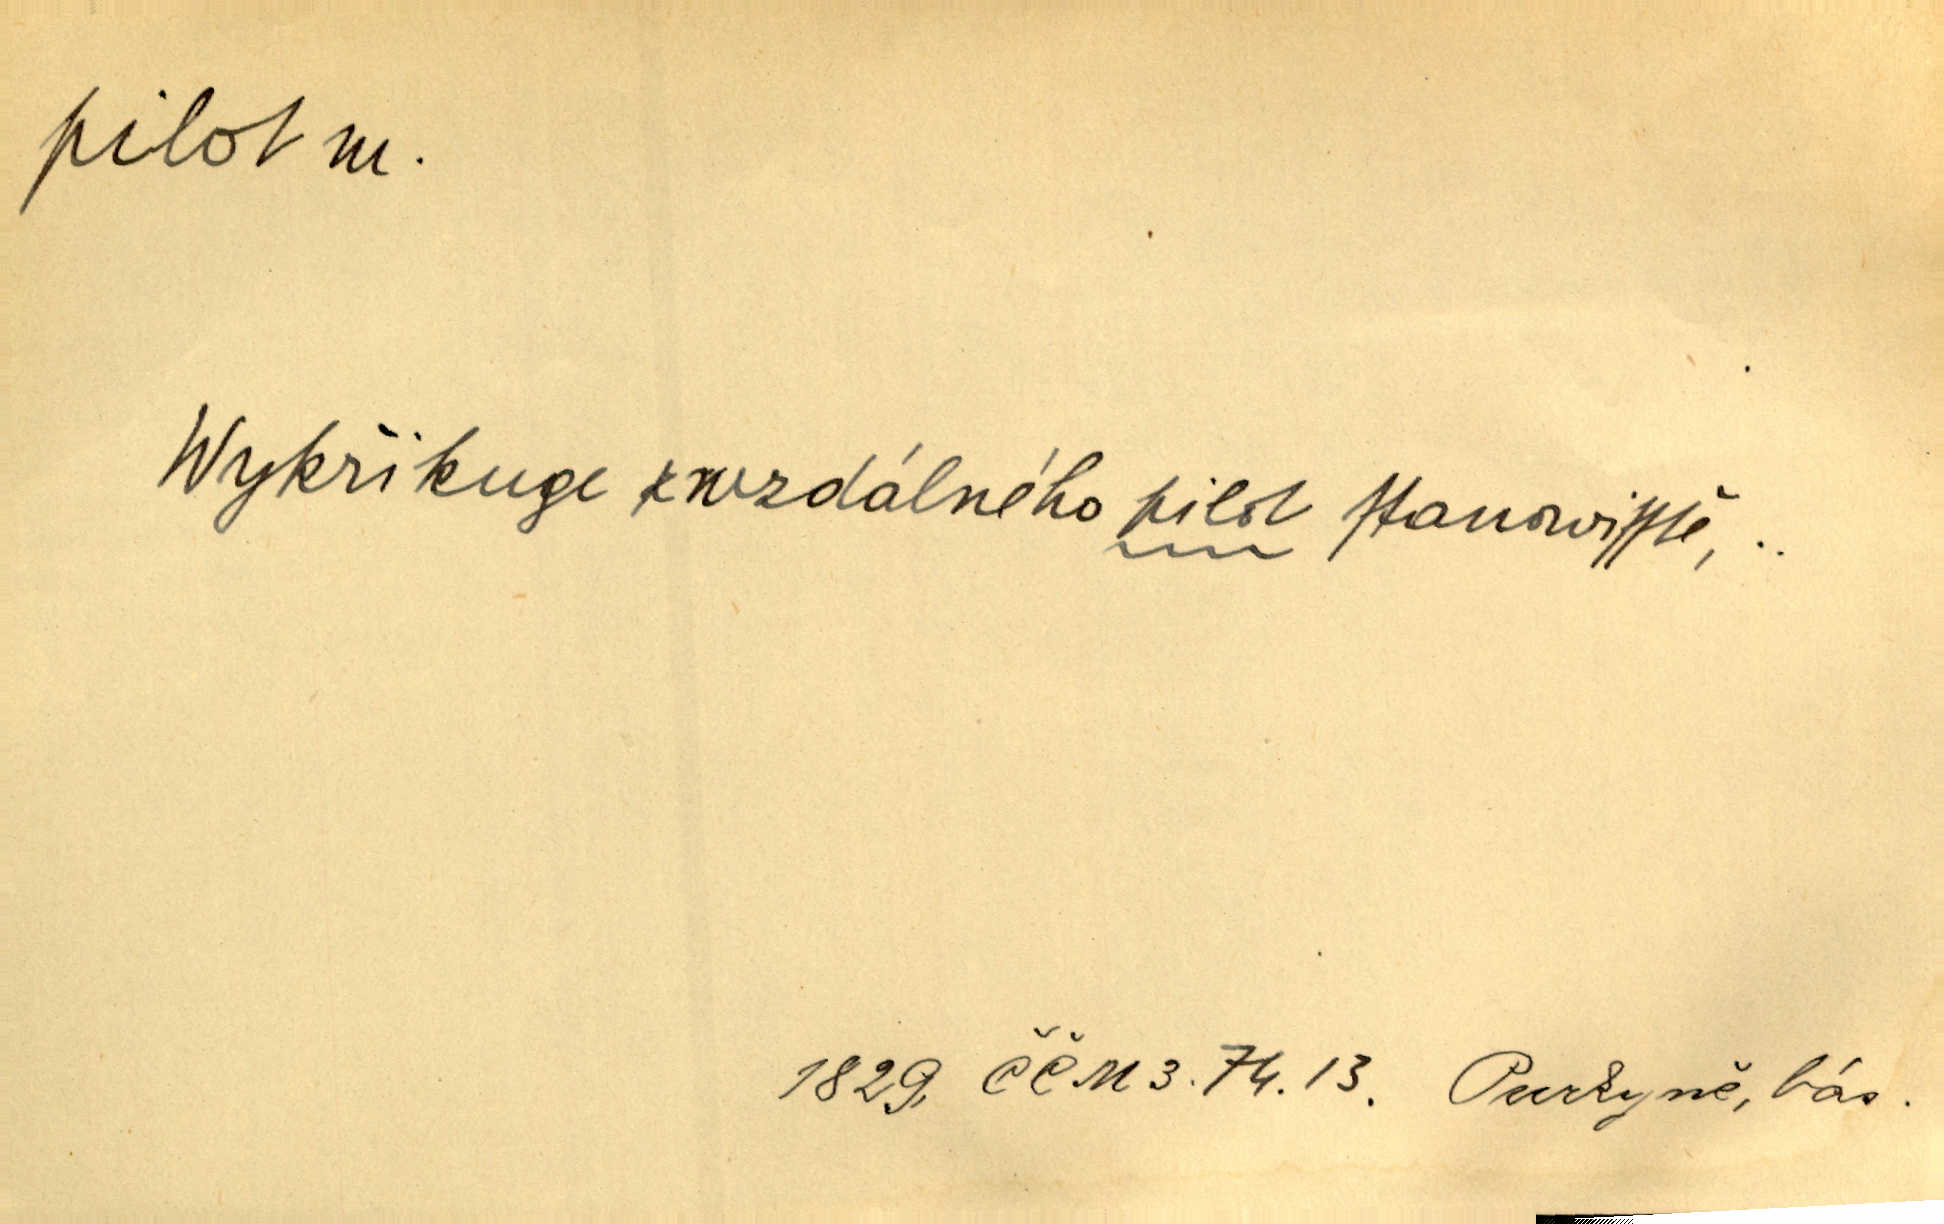 pilot m.
Wykřikuge z wzdálného pilot stanowisstě, ..
1829, ČČM 3. 74. 13. Purkyně, bás.